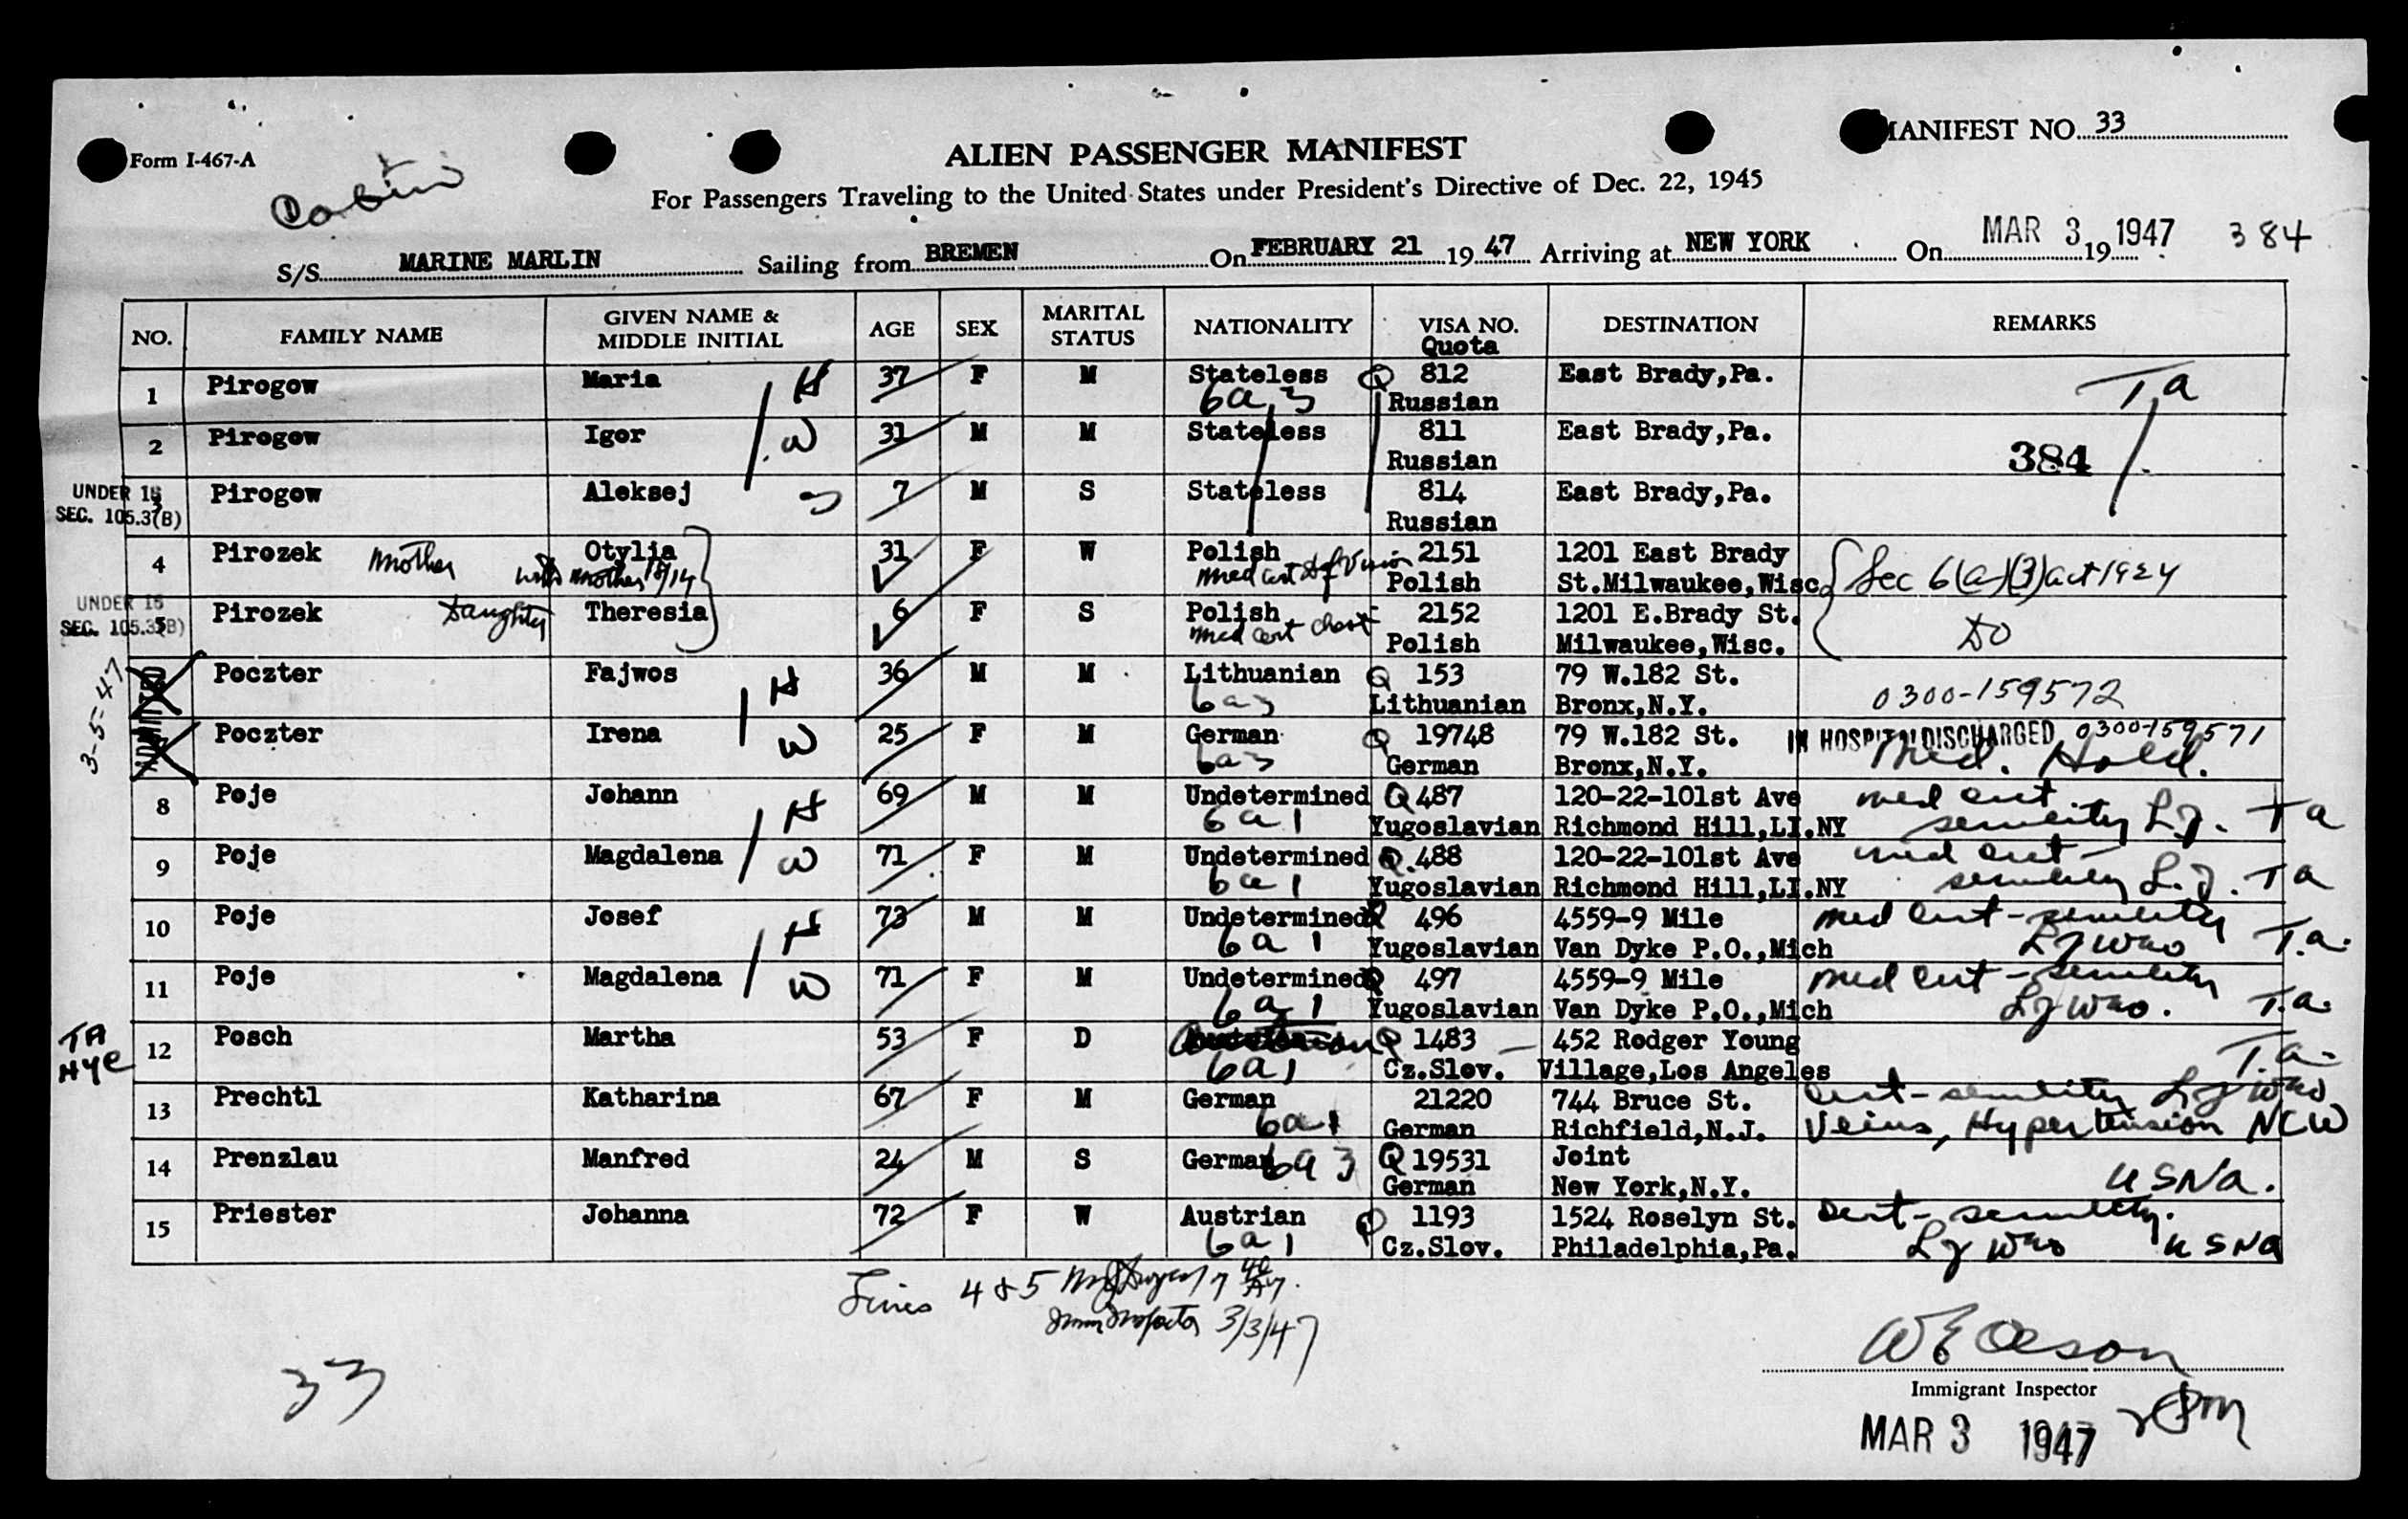 Form I-467-A
ALIEN PASSENGER MANIFEST
MANIFEST NO. 33
Cabin
For Passengers Traveling to the United States under President's Directive of Dec. 22, 1945
S/S MARINE MARLIN Sailing from BREMEN On FEBRUARY 21 19 47 Arriving at NEW YORK On MAR 3, 19 1947 384
NO. FAMILY NAME GIVEN NAME & MIDDLE INITIAL AGE SEX MARITAL STATUS NATIONALITY VISA NO. Quota DESTINATION REMARKS
1 Pirogow Maria H 37 F M Stateless Q 812 East Brady,Pa. Ta
6a,3 Russian
2 Pirogow Igor W 31 M M Stateless 811 East Brady,Pa. 384
Russian
UNDER 16 SEC. 105.3(B) Pirogow Aleksej 7 M S Stateless 814 East Brady,Pa.
Russian
4 Pirozek Mother Otylia 31 F W Polish 2151 1201 East Brady Sec 6(a)(3) act 1924
with mother Med cert Def Vision Polish St.Milwaukee,Wisc
UNDER 16 SEC. 105.3(B) 5 Pirozek Daughter Theresia 6 F S Polish 2152 1201 E.Brady St. DO
med cert chest Polish Milwaukee,Wisc.
3-5-47 ADMITTED Poczter Fajwos H 36 M M Lithuanian Q 153 79 W.182 St. 0300-159572
6a3 Lithuanian Bronx,N.Y.
Poczter Irena W 25 F M German Q 19748 79 W.182 St. IN HOSPITAL DISCHARGED 0300-159571
6a3 German Bronx,N.Y. Med. Hold.
8 Poje Johann H 69 M M Undetermined Q 487 120-22-101st Ave med cert
6a1 Yugoslavian Richmond Hill,LI.NY senility Ta
9 Poje Magdalena W 71 F M Undetermined Q 488 120-22-101st Ave med cert-
6a1 Yugoslavian Richmond Hill,LI.NY senility Ta
10 Poje Josef H 73 M M Undetermined Q 496 4559-9 Mile med cert-senility
6a1 Yugoslavian Van Dyke P.O.,Mich T.a.
11 Poje Magdalena W 71 F M Undetermined Q 497 4559-9 Mile med cert-senility
6a1 Yugoslavian Van Dyke P.O.,Mich T.a.
TA 12 Posch Martha 53 F D Q 1483 452 Rodger Young T.a.
6a1 Cz.Slov. Village,Los Angeles
13 Prechtl Katharina 67 F M German 21220 744 Bruce St. cert-senility
6a1 German Richfield,N.J. Veins, Hypertension NCW
14 Prenzlau Manfred 24 M S German 6a3 Q 19531 Joint
German New York,N.Y. USNa.
15 Priester Johanna 72 F W Austrian Q 1193 1524 Roselyn St. cert-senility.
6a1 Cz.Slov. Philadelphia,Pa. USNA
Lines 4 & 5
Imm Inspector 3/3/47
33
W E Olson
Immigrant Inspector
MAR 3 1947